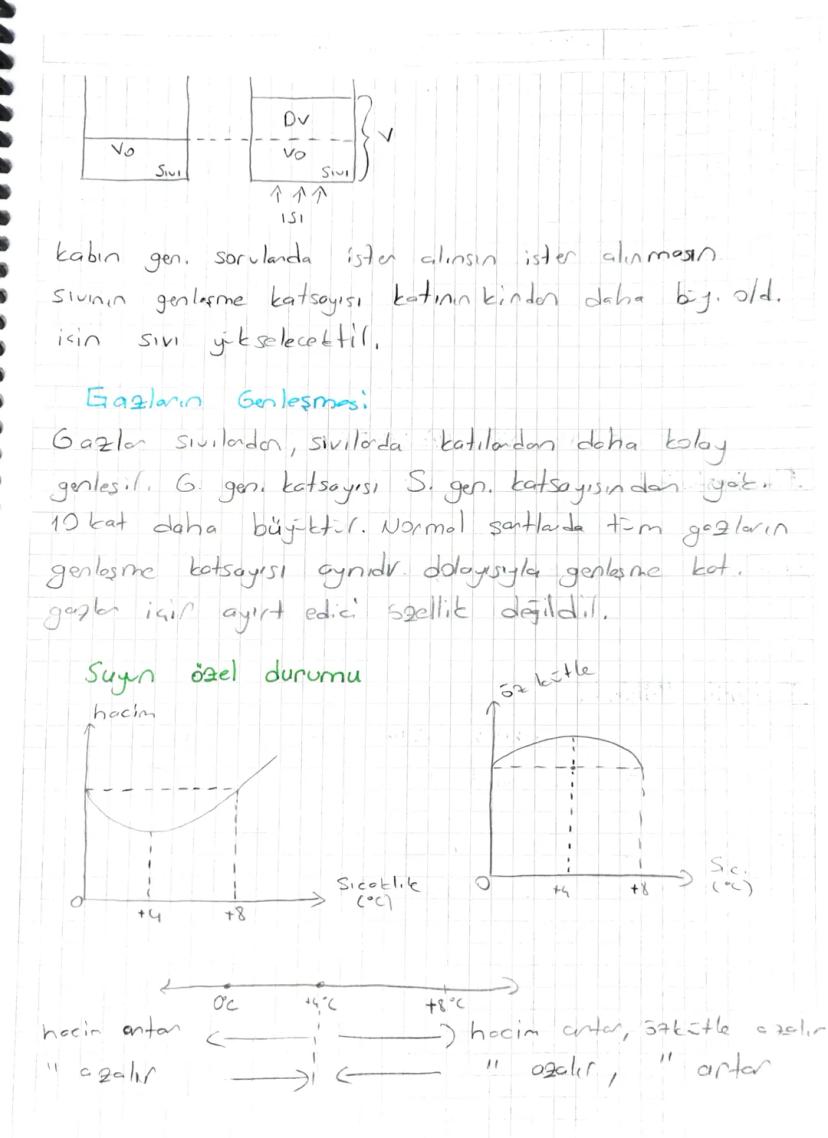 Vo
Sıvı
DV
Vo
Sıvı
V
ISI
kabın gen. sorularda ister alınsın ister alınmasın
sıvının genleşme katsayısı katınınkinden daha büy. old.
için sıvı yükselecektir.
Gazların Genleşmesi
Gazlar sıvılardan, sıvılarda katılardan daha kolay
genleşir. G. gen. katsayısı S. gen. katsayısından yak.
10 kat daha büyüktür. Normal şartlarda tüm gazların
genleşme katsayısı aynıdır. dolayısıyla genleşme kat.
gazlar için ayırt edici özellik değildir.
Suyun özel durumu
hacim
0
+4
+8
Sıcaklık
(°C)
öz kütle
0
+4
+8
Sıc.
(°C)
0°C +4°C +8°C
hacim artar hacim artar, özkütle azalır
" azalır " azalır, " artar